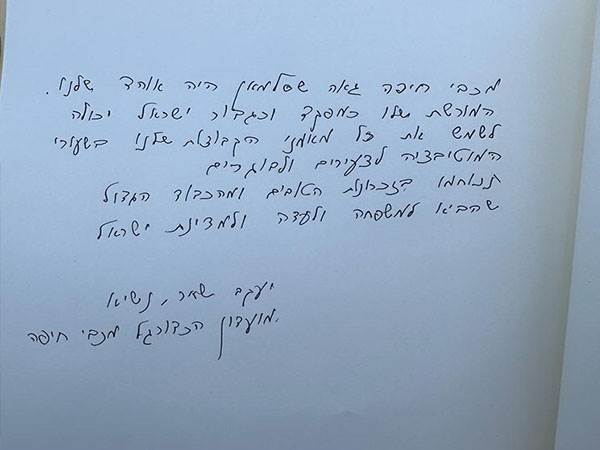 מכבי חיפה גאה שסלמאן היה אוהד שלנו.
המורשת שלו כמפקד וכגבור ישראל יכולה
לשמש את כל מאמני הקבוצות שלנו בשעורי
המוטיבציה לצעירים ולבוגרים
תנוחמו בזכרונות הטובים ומהכבוד הגדול
שהביא למשפחה ולעדה ולמדינת ישראל
יעקב שחר, נשיא
מועדון הכדורגל מכבי חיפה.